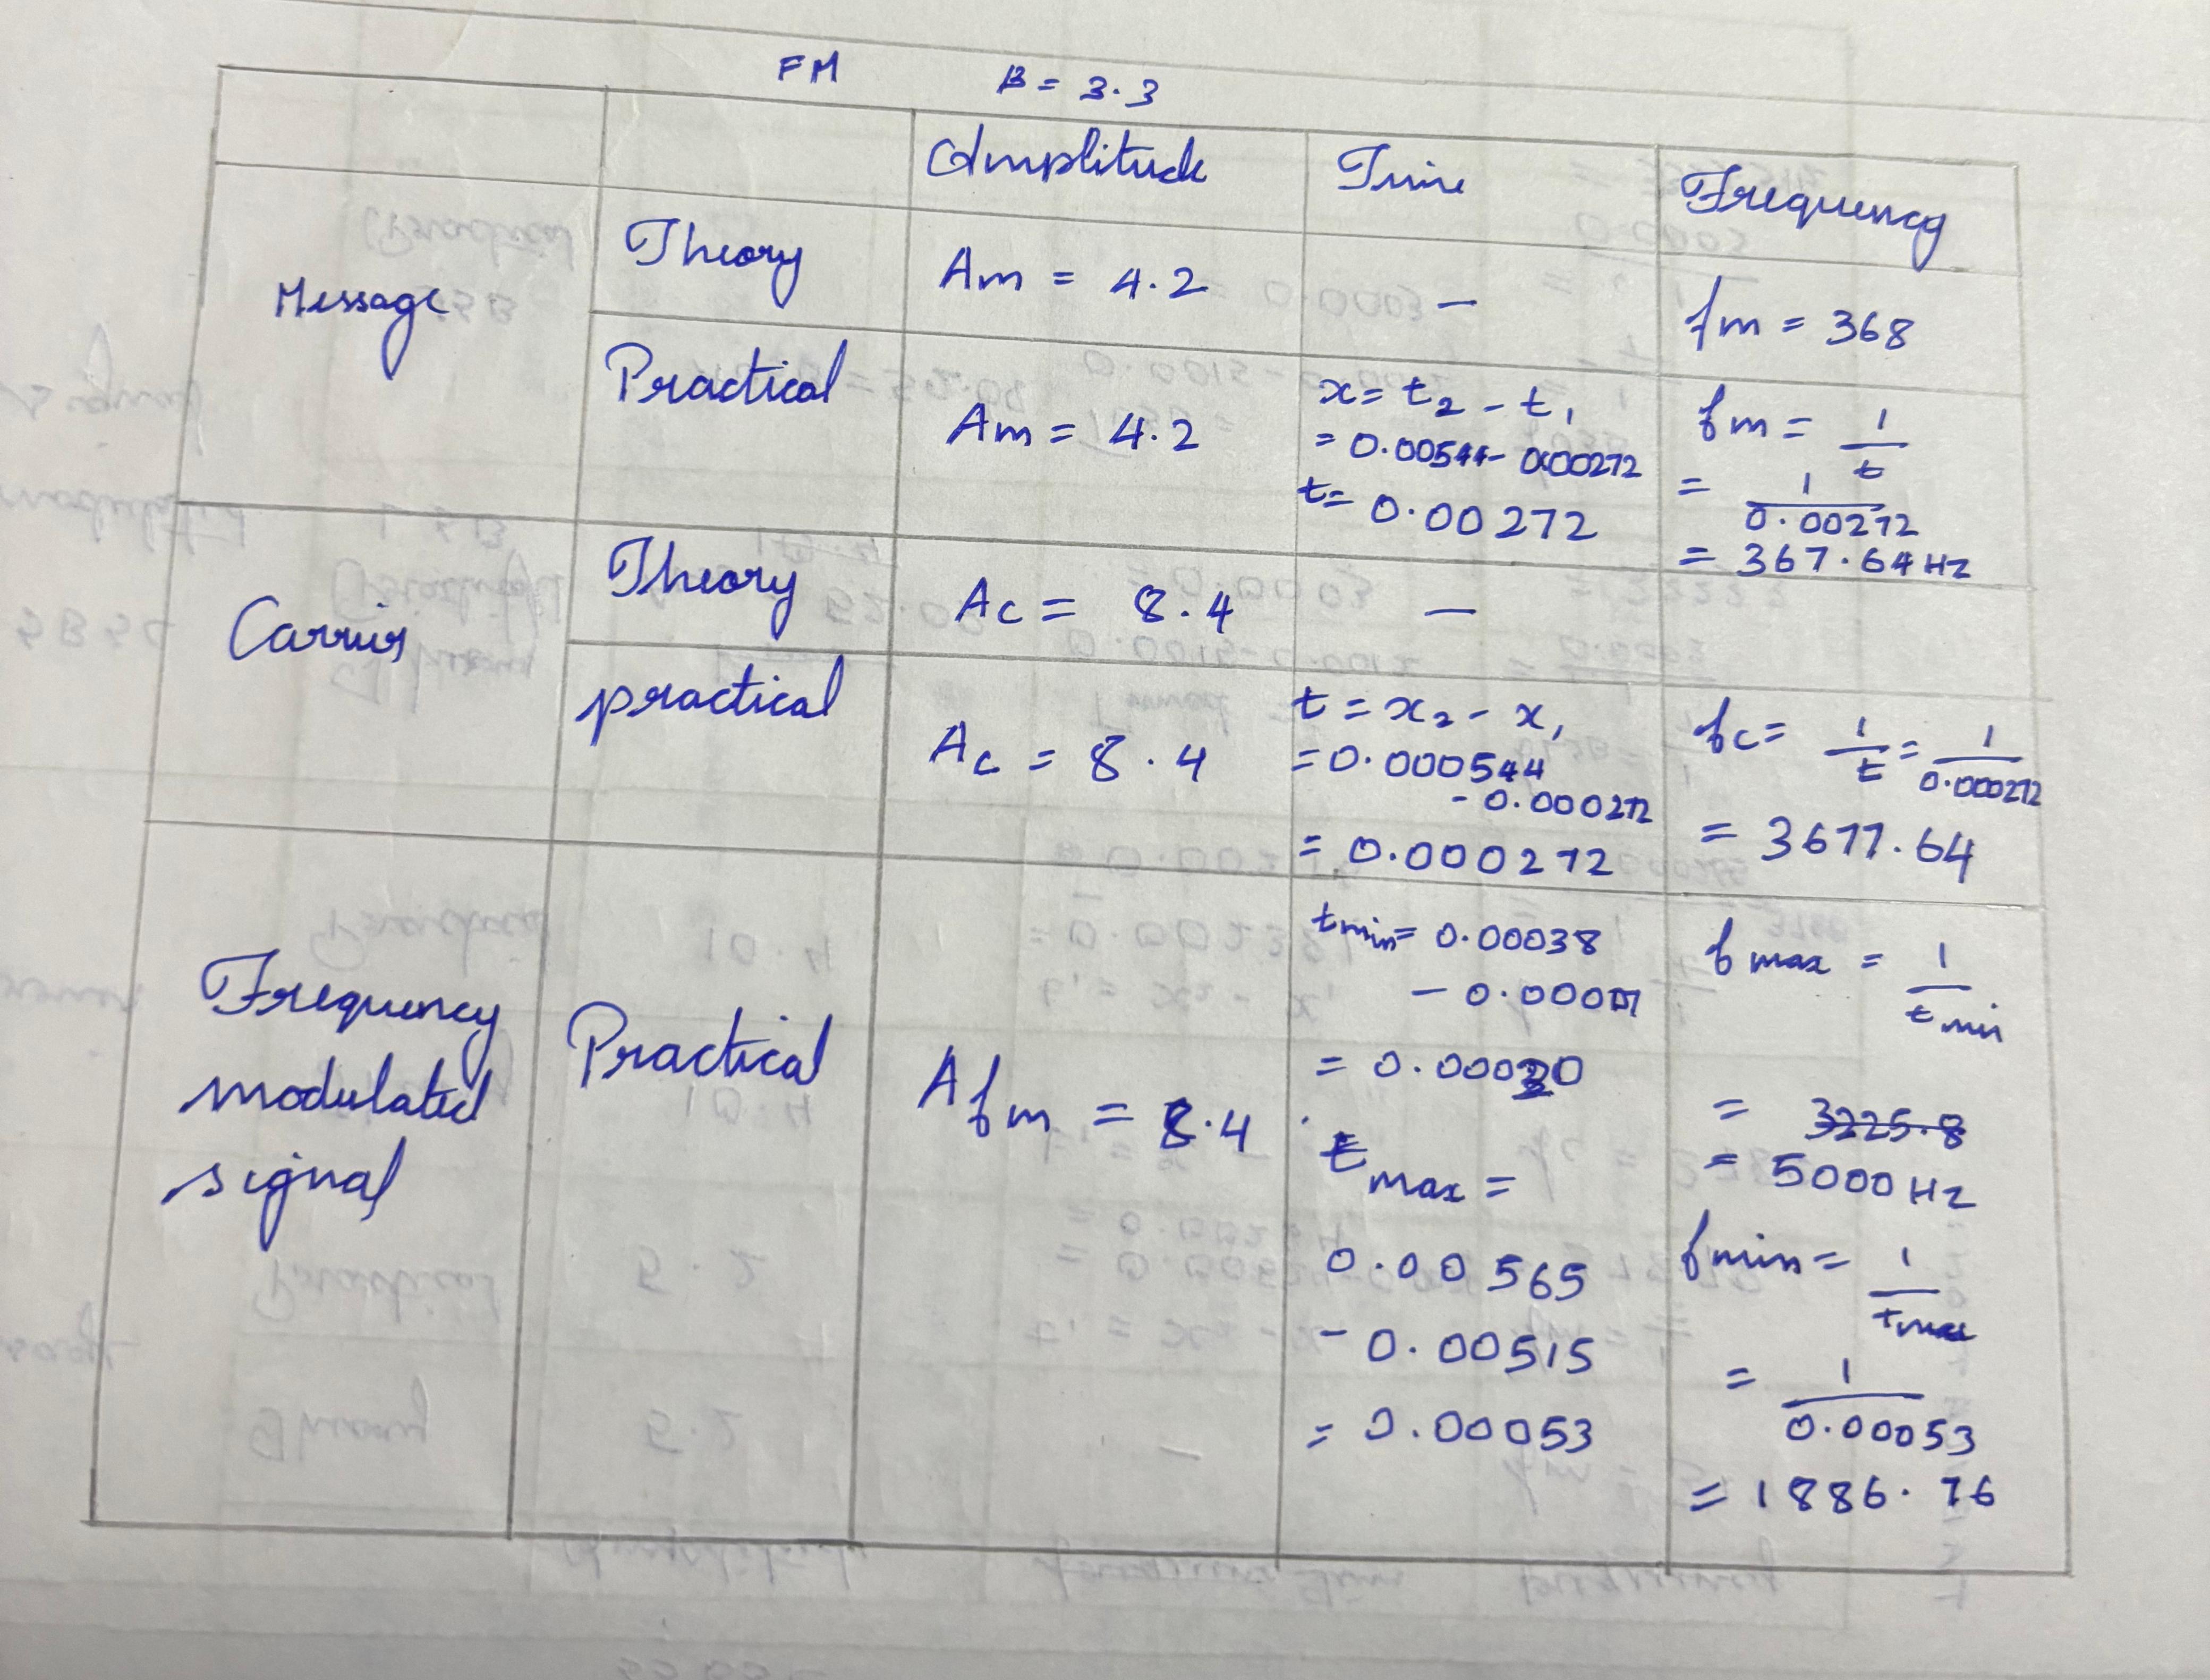 FM β = 3.3
Amplitude Time Frequency
Message Theory Am = 4.2 – fm = 368
Practical Am = 4.2 x = t2 - t1
= 0.00544 - 0.00272
t = 0.00272
fm = 1/t
= 1/0.00272
= 367.64 Hz
Carrier Theory Ac = 8.4 –
practical Ac = 8.4 t = x2 - x1
= 0.000544
- 0.000272
= 0.000272
fc = 1/t = 1/0.000272
= 3677.64
Frequency
modulated
signal
Practical
Afm = 8.4
tmin = 0.00038
= 0.00020
tmax =
0.00565
- 0.00515
= 0.00053
fmax = 1/tmin
= 3225.8
= 5000 Hz
fmin = 1/tmax
= 1/0.00053
= 1886.76